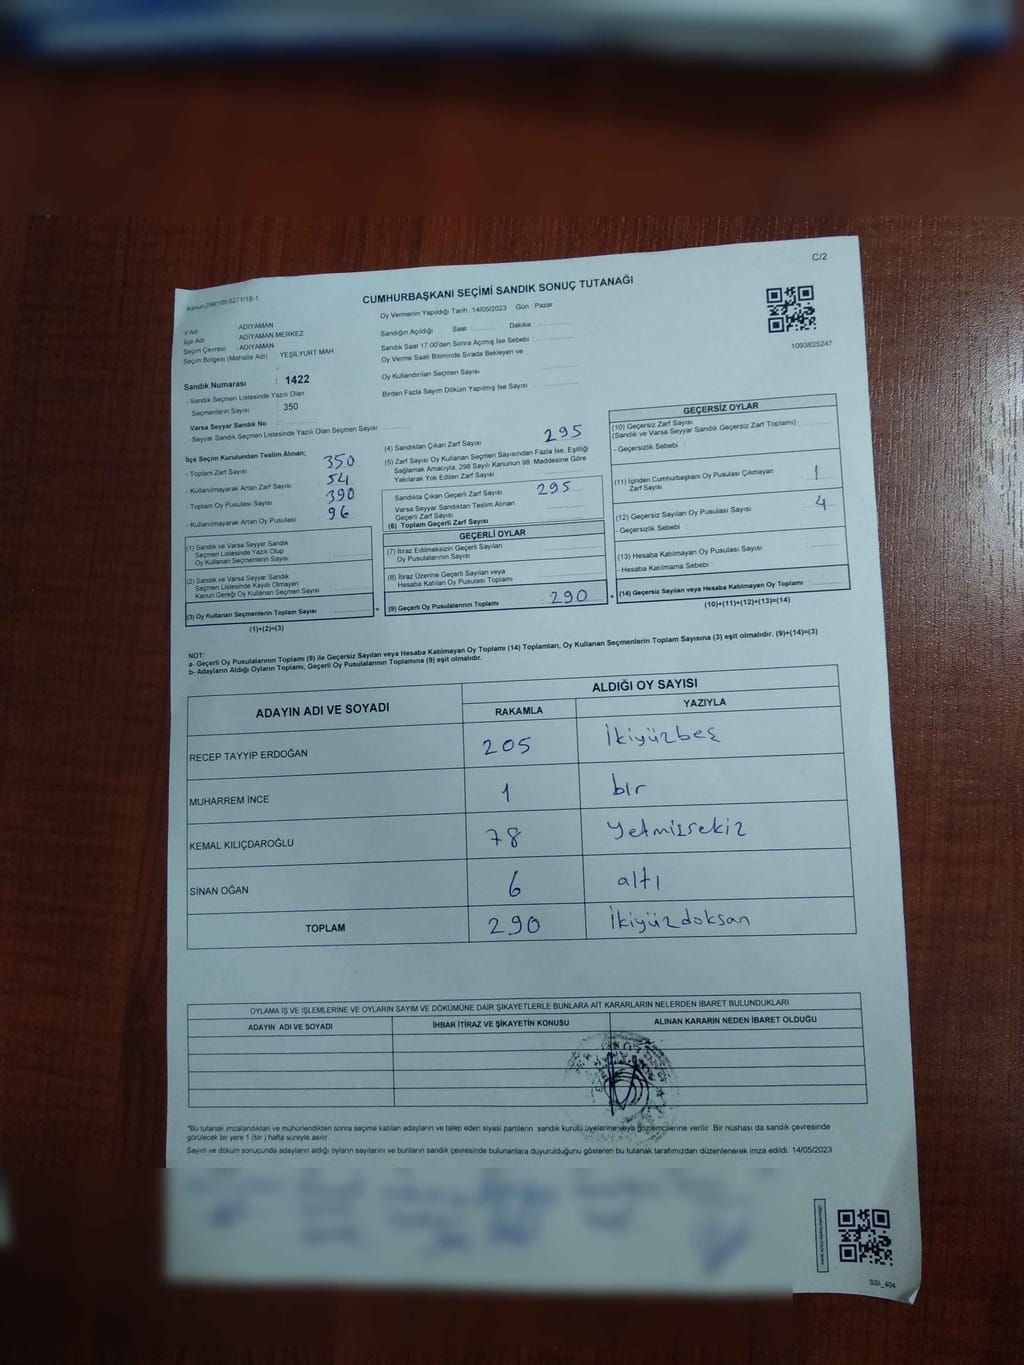 C/2
Kanun:298/105,6271/18-1
CUMHURBAŞKANI SEÇİMİ SANDIK SONUÇ TUTANAĞI
İl Adı ADIYAMAN
İlçe Adı ADIYAMAN MERKEZ
Seçim Çevresi : ADIYAMAN
Seçim Bölgesi (Mahalle Adı) YEŞİLYURT MAH
Sandık Numarası : 1422
- Sandık Seçmen Listesinde Yazılı Olan
Seçmenlerin Sayısı : 350
Varsa Seyyar Sandık No :
- Seyyar Sandık Seçmen Listesinde Yazılı Olan Seçmen Sayısı
Oy Vermenin Yapıldığı Tarih :14/05/2023 Gün : Pazar
Sandığın Açıldığı Saat : Dakika :
Sandık Saat 17:00'den Sonra Açımış İse Sebebi :
Oy Verme Saati Bitiminde Sırada Bekleyen ve
Oy Kullandırılan Seçmen Sayısı :
Birden Fazla Sayım Döküm Yapılmış İse Sayısı :
1093825247
İlçe Seçim Kurulundan Teslim Alınan;
- Toplam Zarf Sayısı 350
- Kullanılmayarak Artan Zarf Sayısı 54
- Toplam Oy Pusulası Sayısı 390
- Kullanılmayarak Artan Oy Pusulası 96
(1) Sandık ve Varsa Seyyar Sandık
Seçmen Listesinde Yazılı Olup
Oy Kullanan Seçmenlerin Sayısı
(2) Sandık ve Varsa Seyyar Sandık
Seçmen Listesinde Kayıtlı Olmayan
Kanun Gereği Oy Kullanan Seçmen Sayısı
(3) Oy Kullanan Seçmenlerin Toplam Sayısı =
(1)+(2)=(3)
(4) Sandıktan Çıkan Zarf Sayısı 295
(5) Zarf Sayısı Oy Kullanan Seçmen Sayısından Fazla İse, Eşitliği
Sağlamak Amacıyla, 298 Sayılı Kanunun 98. Maddesine Göre
Yakılarak Yok Edilen Zarf Sayısı
Sandıkta Çıkan Geçerli Zarf Sayısı 295
Varsa Seyyar Sandıktan Teslim Alınan
Geçerli Zarf Sayısı
(6) Toplam Geçerli Zarf Sayısı
GEÇERLİ OYLAR
(7) İtiraz Edilmeksizin Geçerli Sayılan
Oy Pusulalarının Sayısı
(8) İtiraz Üzerine Geçerli Sayılan veya
Hesaba Katılan Oy Pusulası Toplamı
(9) Geçerli Oy Pusulalarının Toplamı 290 +
GEÇERSİZ OYLAR
(10) Geçersiz Zarf Sayısı
(Sandık ve Varsa Seyyar Sandık Geçersiz Zarf Toplamı) :
- Geçersizlik Sebebi
(11) İçinden Cumhurbaşkanı Oy Pusulası Çıkmayan
Zarf Sayısı 1
(12) Geçersiz Sayılan Oy Pusulası Sayısı 4
- Geçersizlik Sebebi :
(13) Hesaba Katılmayan Oy Pusulası Sayısı
- Hesaba Katılmama Sebebi :
(14) Geçersiz Sayılan veya Hesaba Katılmayan Oy Toplamı
(10)+(11)+(12)+(13)=(14)
NOT:
a- Geçerli Oy Pusulalarının Toplamı (9) ile Geçersiz Sayılan veya Hesaba Katılmayan Oy Toplamı (14) Toplamları, Oy Kullanan Seçmenlerin Toplam Sayısına (3) eşit olmalıdır. (9)+(14)=(3)
b- Adayların Aldığı Oyların Toplamı, Geçerli Oy Pusulalarının Toplamına (9) eşit olmalıdır.
ADAYIN ADI VE SOYADI ALDIĞI OY SAYISI
RAKAMLA YAZIYLA
RECEP TAYYİP ERDOĞAN 205 İkiyüzbeş
MUHARREM İNCE 1 bir
KEMAL KILIÇDAROĞLU 78 Yetmişsekiz
SİNAN OĞAN 6 altı
TOPLAM 290 İkiyüzdoksan
OYLAMA İŞ VE İŞLEMLERİNE VE OYLARIN SAYIM VE DÖKÜMÜNE DAİR ŞİKAYETLERLE BUNLARA AİT KARARLARIN NELERDEN İBARET BULUNDUKLARI
ADAYIN ADI VE SOYADI İHBAR İTİRAZ VE ŞİKAYETİN KONUSU ALINAN KARARIN NEDEN İBARET OLDUĞU
*Bu tutanak imzalandıktan ve mühürlendikten sonra seçime katılan adayların ve talep eden siyasi partilerin sandık kurulu üyelerine veya gözlemcilerine verilir. Bir nüshası da sandık çevresinde
görülecek bir yere 1 (bir ) hafta süreyle asılır.
Sayım ve döküm sonucunda adayların aldığı oyların sayılarını ve bunların sandık çevresinde bulunanlara duyurulduğunu gösteren bu tutanak tarafımızdan düzenlenerek imza edildi. 14/05/2023
SSI_404